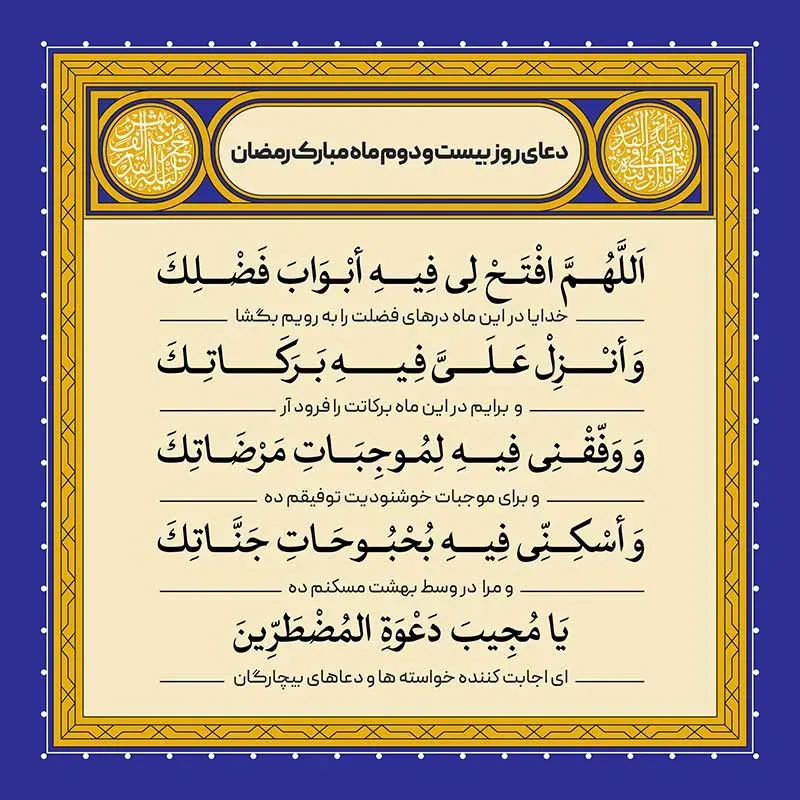 دعای روز بیست و دوم ماه مبارک رمضان
اَللَّهُمَّ افْتَحْ لِی فِیهِ أَبْوَابَ فَضْلِكَ
خدایا در این ماه درهای فضلت را به رویم بگشا
وَ أَنْزِلْ عَلَیَّ فِیهِ بَرَكَاتِكَ
و برایم در این ماه برکاتت را فرود آر
وَ وَفِّقْنِی فِیهِ لِمُوجِبَاتِ مَرْضَاتِكَ
و برای موجبات خوشنودیت توفیقم ده
وَ أَسْكِنِّی فِیهِ بُحْبُوحَاتِ جَنَّاتِكَ
و مرا در وسط بهشت مسکنم ده
یَا مُجِیبَ دَعْوَةِ المُضْطَرِّینَ
ای اجابت کننده خواسته ها و دعاهای بیچارگان